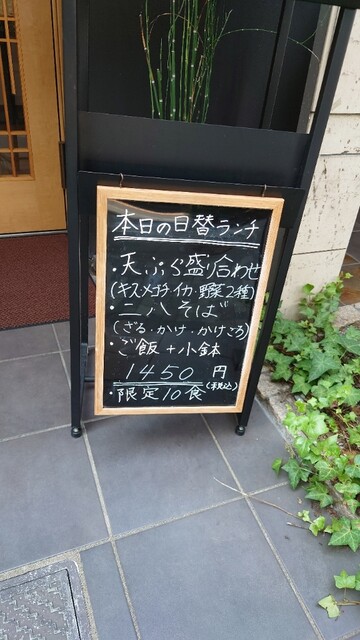 本日の日替ランチ
・天ぷら盛り合わせ
(キス・メゴチ・イカ・野菜2種)
・二八そば
(ざる・かけ・かけころ)
・ご飯+小鉢
1450円
(税込)
・限定10食